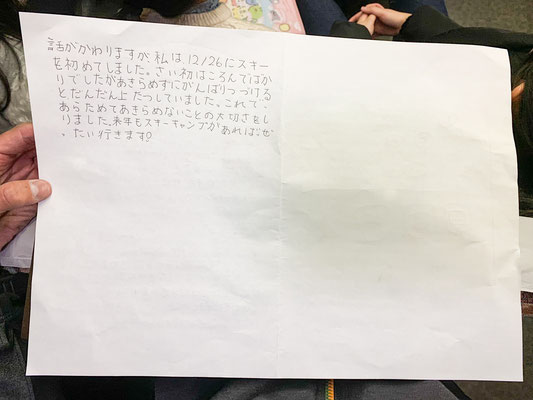 話がかわりますが、私は、12/26にスキー
を初めてしました。さい初はころんでばか
りでしたがあきらめずにがんばりつづける
とだんだん上たつしていました。これで、
あらためてあきらめないことの大切さをし
りました。来年もスキーキャンプがあればぜ
。たい行きます!